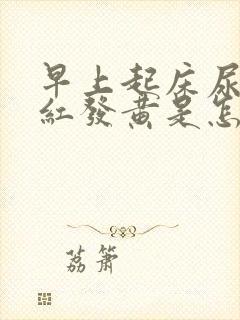 早上起床尿
紅發黃是怎
荔簫